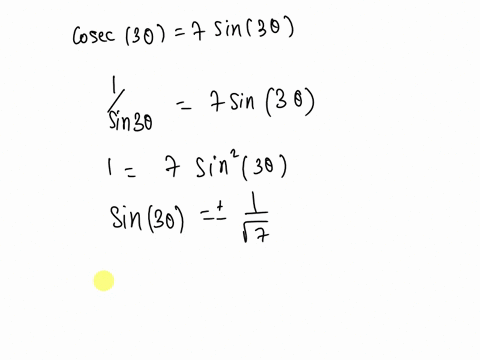 Cosec (3θ) = 7 sin(3θ)
1/sin3θ = 7 sin (3θ)
1 = 7 sin²(3θ)
Sin(3θ) = ± 1/√7